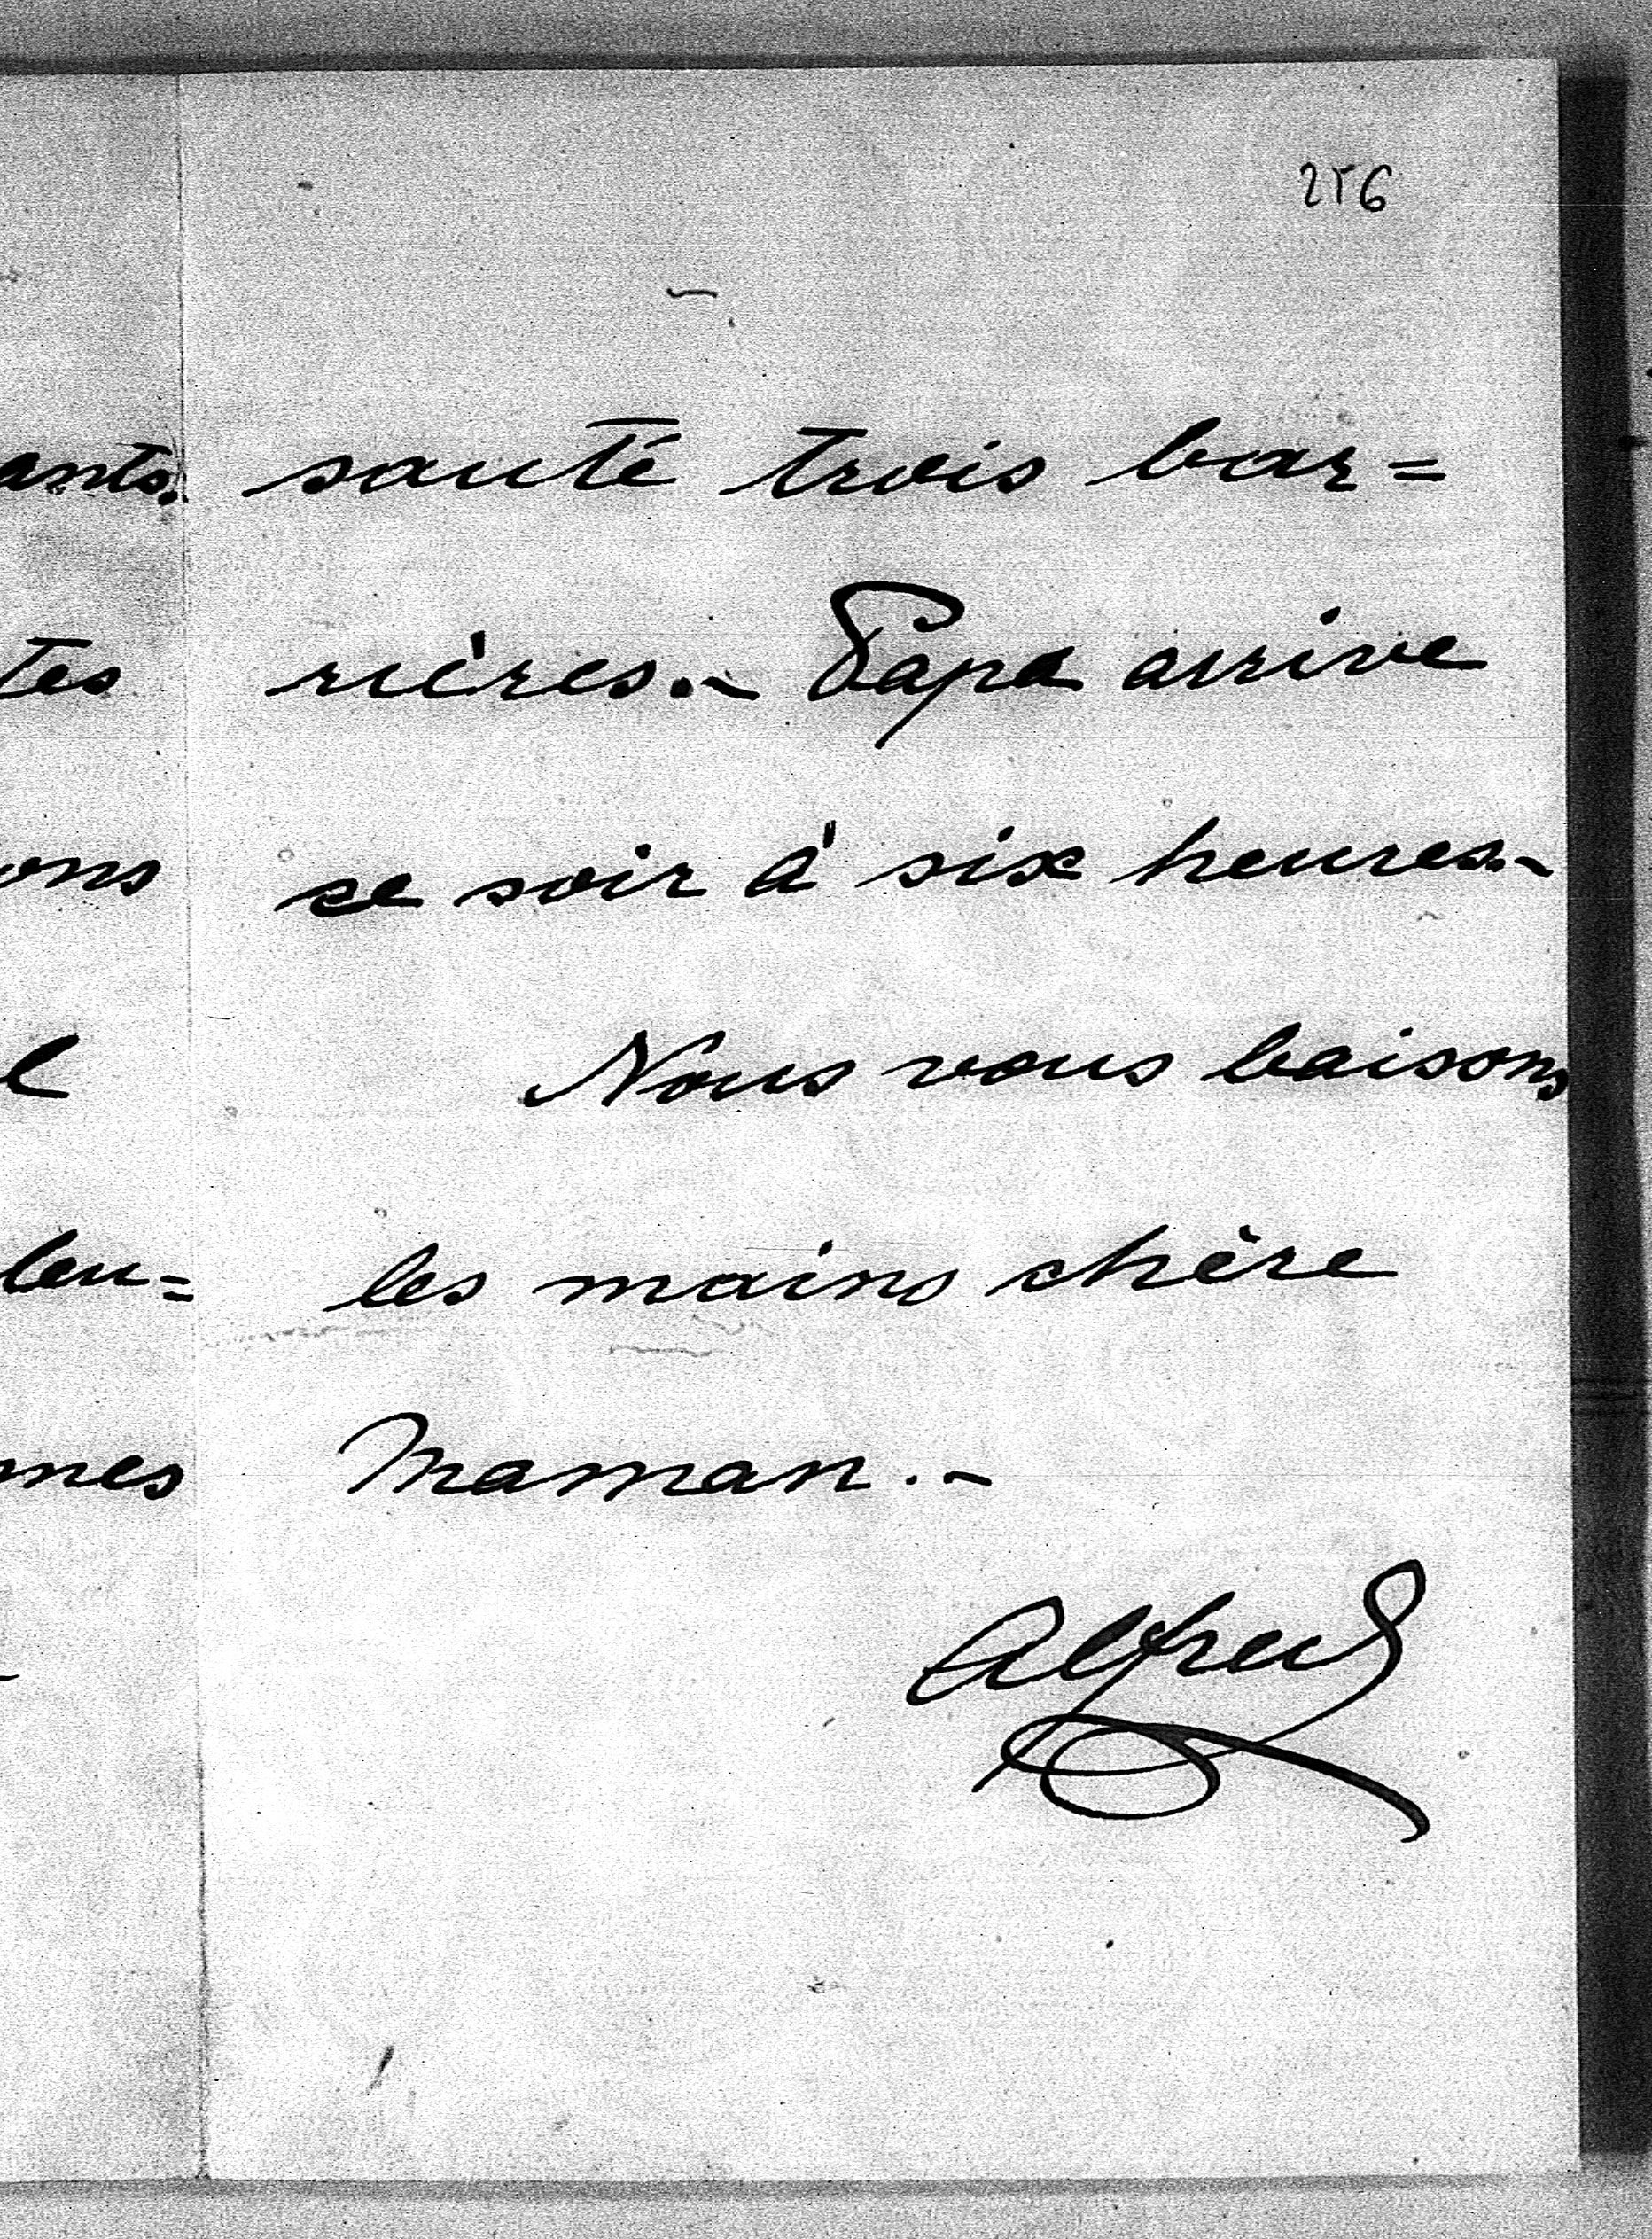 256
sauté trois bar=
rières.- Papa arrive
ce soir à six heures.-
Nous vous baisons
les mains chère
Maman.-
Alfred
ants.
tes
ons
l
leu=
mes